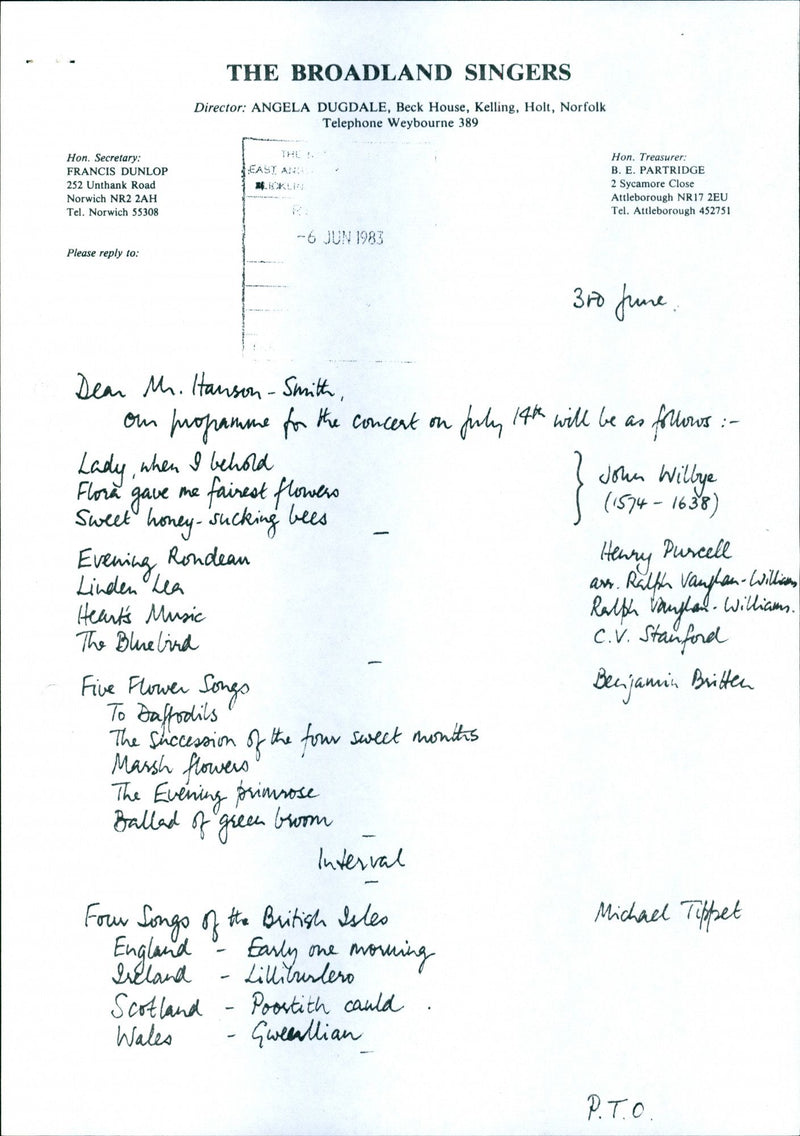 THE BROADLAND SINGERS
Director: ANGELA DUGDALE, Beck House, Kelling, Holt, Norfolk
Telephone Weybourne 389
Hon. Secretary:
FRANCIS DUNLOP
252 Unthank Road
Norwich NR2 2AH
Tel. Norwich 55308
Please reply to:
THE
EAST
-6 JUN 1983
Hon. Treasurer:
B. E. PARTRIDGE
2 Sycamore Close
Attleborough NR17 2EU
Tel. Attleborough 452751
3rd June.
Dear Mr. Hanson-Smith,
our programme for the concert on July 14th will be as follows :-
Lady, when I behold
Flora gave me fairest flowers
Sweet honey-sucking bees
John Wilbye
(1574 - 1638)
Evening Rondeau Henry Purcell
Linden Lea arr. Ralph Vaughan-Williams
Heart's Music Ralph Vaughan-Williams.
The Bluebird C.V. Stanford
Five Flower Songs Benjamin Britten
To Daffodils
The Succession of the four sweet months
Marsh flowers
The Evening primrose
Ballad of green broom
Interval
Four Songs of the British Isles Michael Tippet
England - Early one morning
Ireland - Lilliburlero
Scotland - Poortith cauld
Wales - Gwenllian
P.T.O.